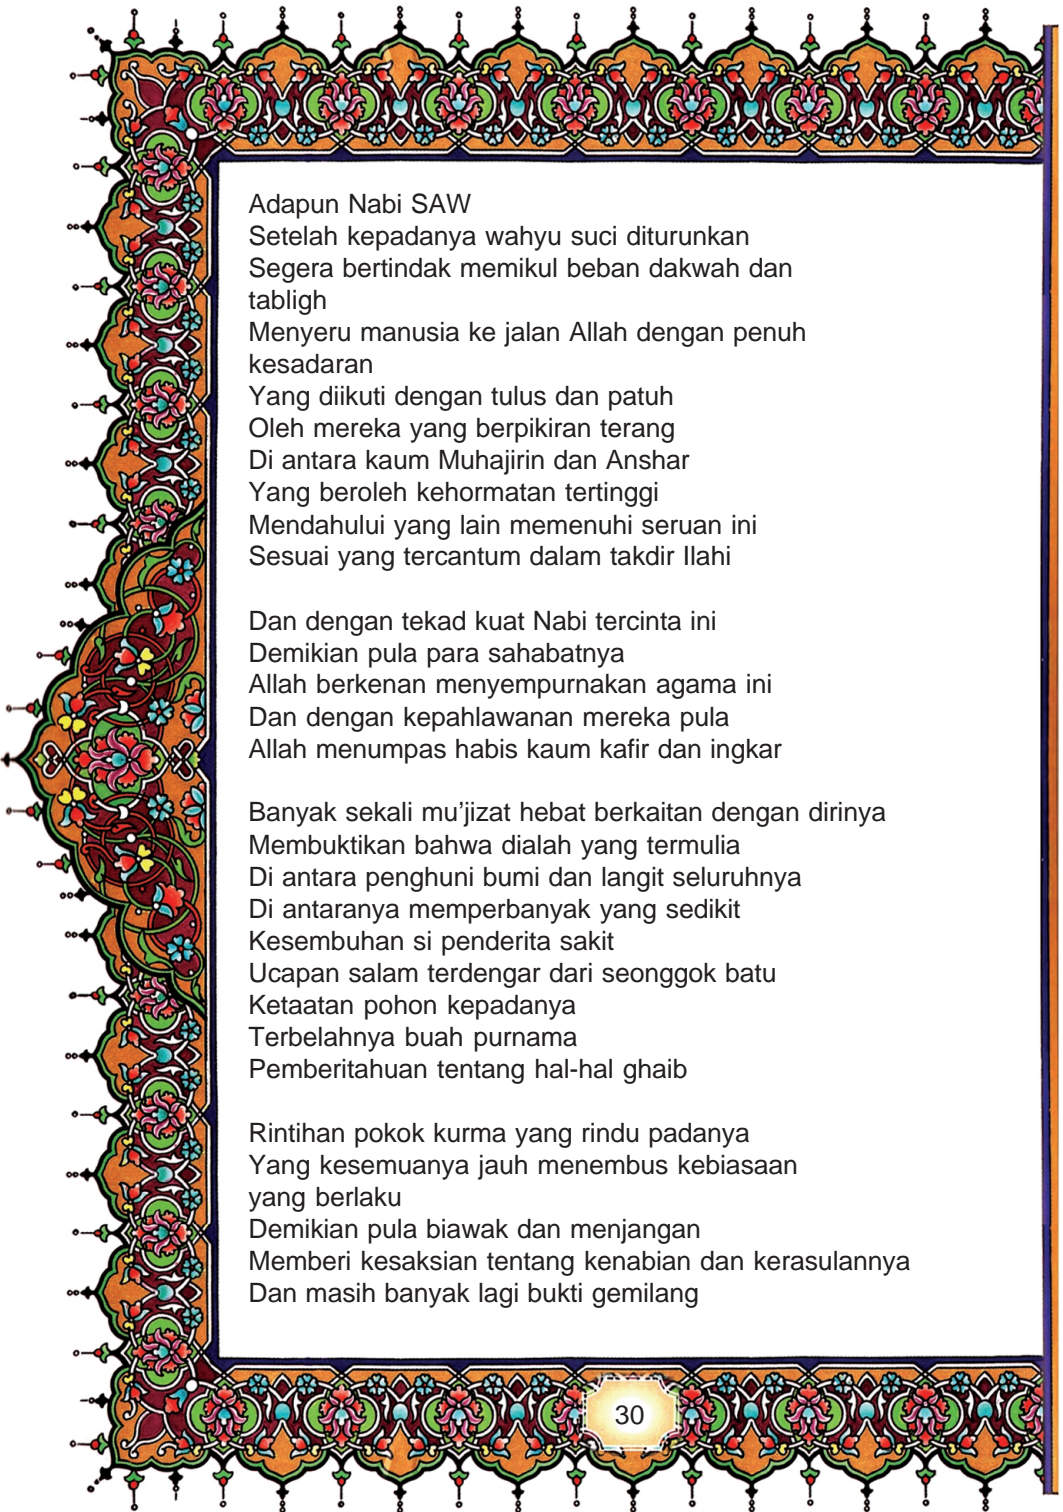 Adapun Nabi SAW
Setelah kepadanya wahyu suci diturunkan
Segera bertindak memikul beban dakwah dan
tabligh
Menyeru manusia ke jalan Allah dengan penuh
kesadaran
Yang diikuti dengan tulus dan patuh
Oleh mereka yang berpikiran terang
Di antara kaum Muhajirin dan Anshar
Yang beroleh kehormatan tertinggi
Mendahului yang lain memenuhi seruan ini
Sesuai yang tercantum dalam takdir Ilahi

Dan dengan tekad kuat Nabi tercinta ini
Demikian pula para sahabatnya
Allah berkenan menyempurnakan agama ini
Dan dengan kepahlawanan mereka pula
Allah menumpas habis kaum kafir dan ingkar

Banyak sekali mu’jizat hebat berkaitan dengan dirinya
Membuktikan bahwa dialah yang termulia
Di antara penghuni bumi dan langit seluruhnya
Di antaranya memperbanyak yang sedikit
Kesembuhan si penderita sakit
Ucapan salam terdengar dari seonggok batu
Ketaatan pohon kepadanya
Terbelahnya buah purnama
Pemberitahuan tentang hal-hal ghaib

Rintihan pokok kurma yang rindu padanya
Yang kesemuanya jauh menembus kebiasaan
yang berlaku
Demikian pula biawak dan menjangan
Memberi kesaksian tentang kenabian dan kerasulannya
Dan masih banyak lagi bukti gemilang

30